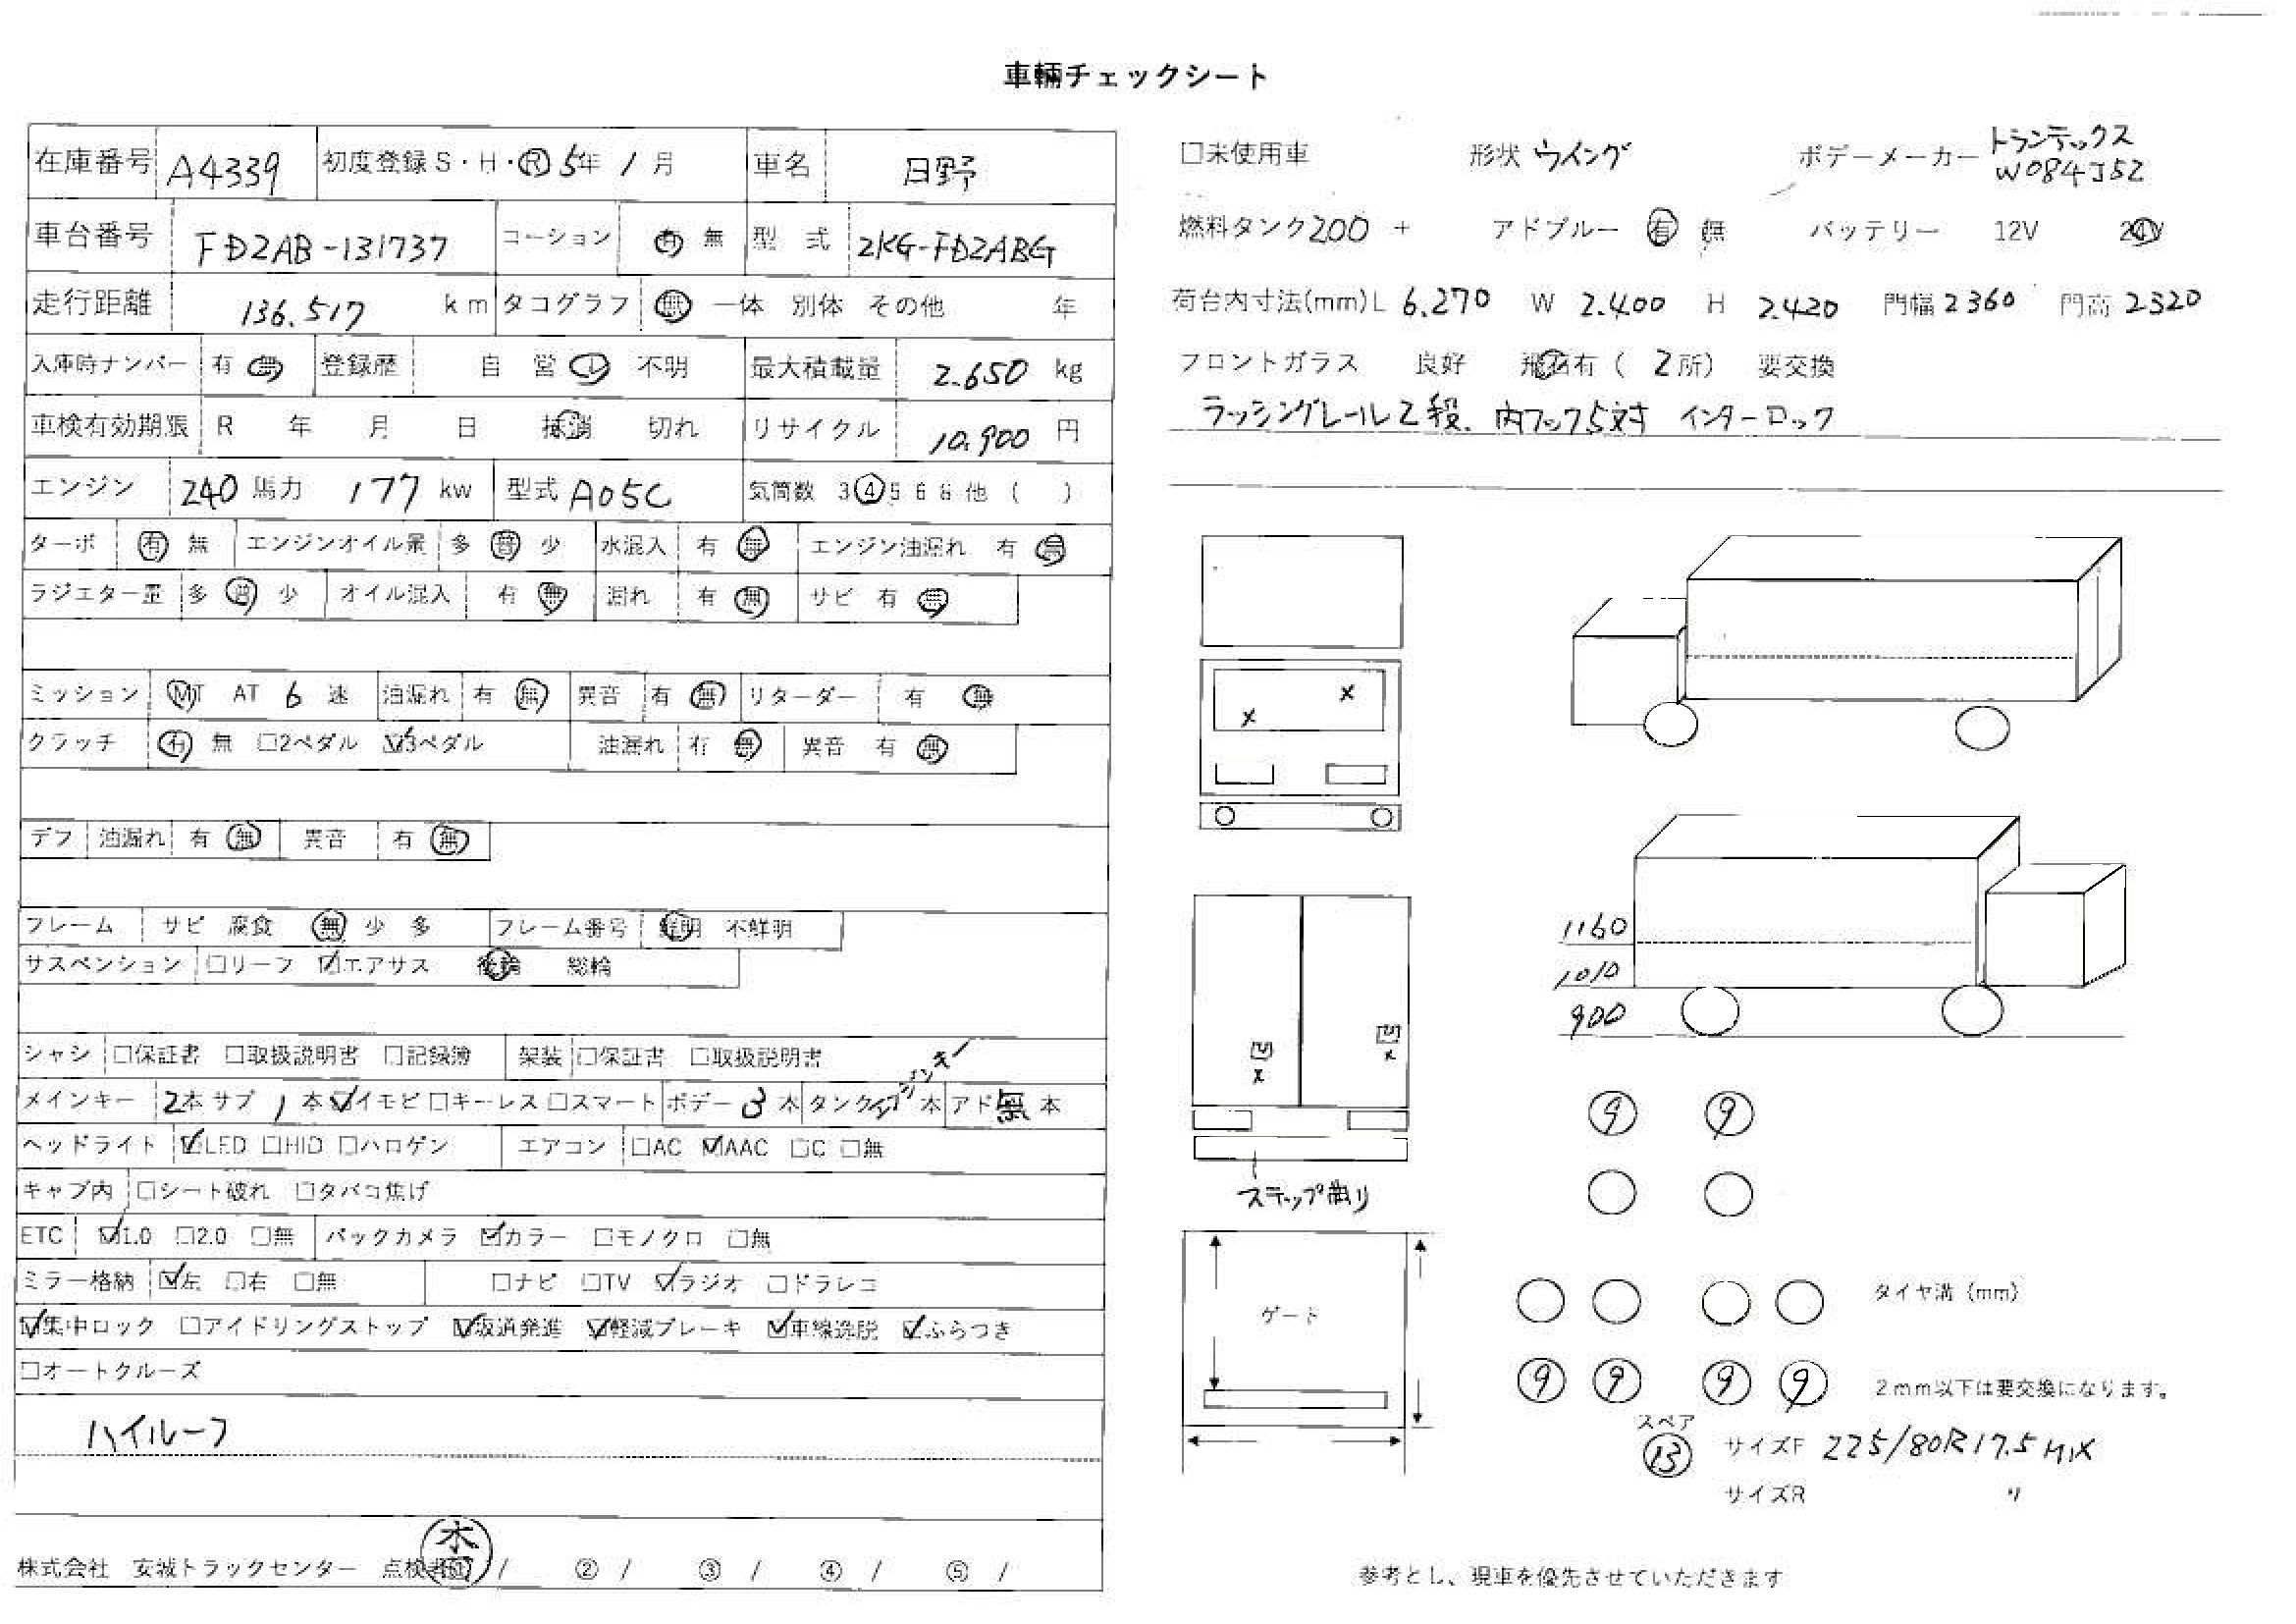 車輛チェックシート
在庫番号 A4339 初度登録 S・H・R 5年 1月 車名 日野
車台番号 FD2AB-131737 コーション 有 無 型 式 2KG-FD2ABG
走行距離 136.517 km タコグラフ 無 一体 別体 その他 年
入庫時ナンバー 有 無 登録歴 自 営 不明 最大積載量 2.650 kg
車検有効期限 R 年 月 日 抹消 切れ リサイクル 10.900 円
エンジン 240 馬力 177 kw 型式 A05C 気筒数 3 4 5 6 8 他 ( )
ターボ 有 無 エンジンオイル量 多 普 少 水混入 有 無 エンジン油漏れ 有 無
ラジエター量 多 普 少 オイル混入 有 無 漏れ 有 無 サビ 有 無
ミッション MT AT 6 速 油漏れ 有 無 異音 有 無 リターダー 有 無
クラッチ 有 無 □2ペダル ☑3ペダル 油漏れ 有 無 異音 有 無
デフ 油漏れ 有 無 異音 有 無
フレーム サビ 腐食 無 少 多 フレーム番号 鮮明 不鮮明
サスペンション □リーフ ☑エアサス 後輪 総輪
シャシ □保証書 □取扱説明書 □記録簿 架装 □保証書 □取扱説明書
メインキー 2本 サブ 1本 ☑イモビ □キーレス □スマート ボデー 3 本 タンク エンジンキー 本 アド 無 本
ヘッドライト ☑LED □HID □ハロゲン エアコン □AC ☑AAC □C □無
キャブ内 □シート破れ □タバコ焦げ
ETC ☑1.0 □2.0 □無 バックカメラ ☑カラー □モノクロ □無
ミラー格納 ☑左 □右 □無 □ナビ □TV ☑ラジオ □ドラレコ
☑集中ロック □アイドリングストップ ☑坂道発進 ☑軽減ブレーキ ☑車線逸脱 ☑ふらつき
□オートクルーズ
ハイルーフ
株式会社 安城トラックセンター 点検者① / ② / ③ / ④ / ⑤ /
□未使用車 形状 ウイング ボデーメーカー トランテックス
W084J52
燃料タンク 200 + アドブルー 有 無 バッテリー 12V 24V
荷台内寸法(mm) L 6.270 W 2.400 H 2.420 門幅 2360 門高 2320
フロントガラス 良好 飛石有 ( 2所) 要交換
ラッシングレール2段. 内フック5対 インターロック
1160
1010
900
凹 凹
ステップ曲り
ゲート
9 9
タイヤ溝 (mm)
9 9 9 9 2mm以下は要交換になります。
スペア
13 サイズF 225/80R17.5 MIX
サイズR 〃
参考とし、現車を優先させていただきます